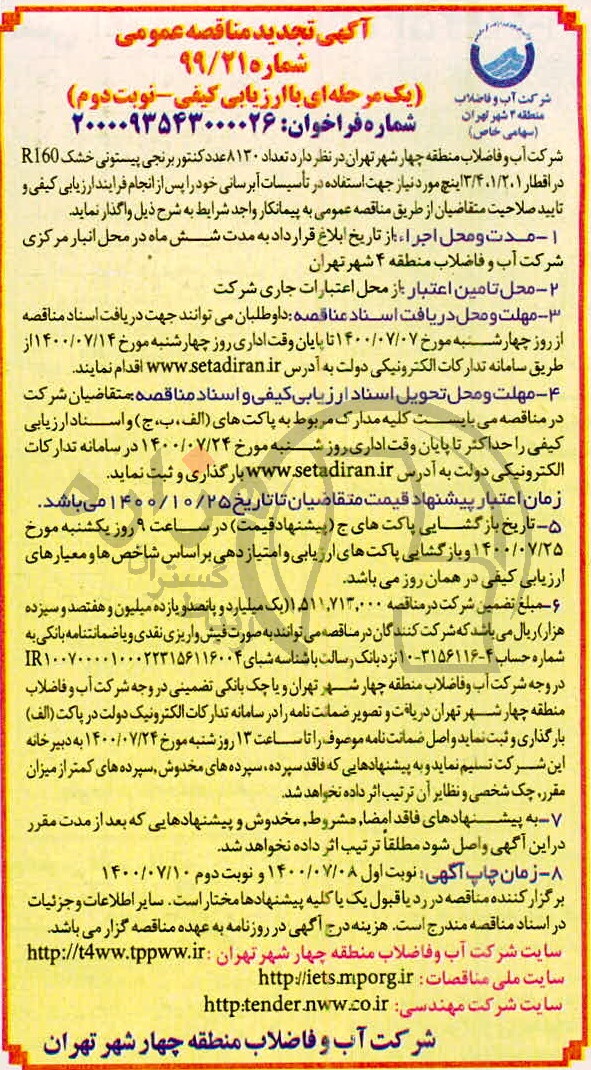 آگهی تجدید مناقصه عمومی
شماره ۹۹/۲۱
(یک مرحله ای با ارزیابی کیفی - نوبت دوم)
شماره فراخوان: ۲۰۰۰۰۹۳۵۴۳۰۰۰۰۲۶
شرکت آب و فاضلاب
منطقه ۴ شهر تهران
(سهامی خاص)
شرکت آب و فاضلاب منطقه چهار شهر تهران در نظر دارد تعداد ۸۱۳۰ عدد کنتور برنجی پیستونی خشک R160
در اقطار ۳/۴،۱/۲،۱ اینچ مورد نیاز جهت استفاده در تأسیسات آبرسانی خود را پس از انجام فرایند ارزیابی کیفی و
تایید صلاحیت متقاضیان از طریق مناقصه عمومی به پیمانکار واجد شرایط به شرح ذیل واگذار نماید.
۱- مدت و محل اجراء: از تاریخ ابلاغ قرارداد به مدت شش ماه در محل انبار مرکزی
شرکت آب و فاضلاب منطقه ۴ شهر تهران
۲- محل تامین اعتبار: از محل اعتبارات جاری شرکت
۳- مهلت و محل دریافت اسناد مناقصه: داوطلبان می توانند جهت دریافت اسناد مناقصه
از روز چهارشنبه مورخ ۱۴۰۰/۰۷/۰۷ تا پایان وقت اداری روز چهارشنبه مورخ ۱۴۰۰/۰۷/۱۴ از
طریق سامانه تدارکات الکترونیکی دولت به آدرس www.setadiran.ir اقدام نمایند.
۴- مهلت و محل تحویل اسناد ارزیابی کیفی و اسناد مناقصه: متقاضیان شرکت
در مناقصه می بایست کلیه مدارک مربوط به پاکت های (الف، ب، ج) و اسناد ارزیابی
کیفی را حداکثر تا پایان وقت اداری روز شنبه مورخ ۱۴۰۰/۰۷/۲۴ در سامانه تدارکات
الکترونیکی دولت به آدرس www.setadiran.ir بارگذاری و ثبت نماید.
زمان اعتبار پیشنهاد قیمت متقاضیان تا تاریخ ۱۴۰۰/۱۰/۲۵ می باشد.
۵- تاریخ بازگشایی پاکت های ج (پیشنهاد قیمت) در ساعت ۹ روز یکشنبه مورخ
۱۴۰۰/۰۷/۲۵ و بازگشایی پاکت های ارزیابی و امتیازدهی بر اساس شاخص ها و معیارهای
ارزیابی کیفی در همان روز می باشد.
۶- مبلغ تضمین شرکت در مناقصه ۱,۵۱۱,۷۱۳,۰۰۰ (یک میلیارد و پانصد و یازده میلیون و هفتصد و سیزده
هزار) ریال می باشد که شرکت کنندگان در مناقصه می توانند به صورت فیش واریزی نقدی و یا ضمانتنامه بانکی به
شماره حساب ۴-۳۱۵۶۱۱۶-۱۰ نزد بانک رسالت با شناسه شبای IR۱۰۰۷۰۰۰۰۱۰۰۰۲۲۳۱۵۶۱۱۶۰۰۴
در وجه شرکت آب و فاضلاب منطقه چهار شهر تهران و یا چک بانکی تضمینی در وجه شرکت آب و فاضلاب
منطقه چهار شهر تهران دریافت و تصویر ضمانت نامه را در سامانه تدارکات الکترونیک دولت در پاکت (الف)
بارگذاری و ثبت نماید و اصل ضمانت نامه موصوف را تا ساعت ۱۳ روز شنبه مورخ ۱۴۰۰/۰۷/۲۴ به دبیرخانه
این شرکت تسلیم نماید و به پیشنهادهایی که فاقد سپرده، سپرده های مخدوش، سپرده های کمتر از میزان
مقرر، چک شخصی و نظایر آن ترتیب اثر داده نخواهد شد.
۷- به پیشنهادهای فاقد امضا، مشروط، مخدوش و پیشنهادهایی که بعد از مدت مقرر
در این آگهی واصل شود مطلقاً ترتیب اثر داده نخواهد شد.
۸- زمان چاپ آگهی: نوبت اول ۱۴۰۰/۰۷/۰۸ و نوبت دوم ۱۴۰۰/۰۷/۱۰
برگزار کننده مناقصه در رد یا قبول یک یا کلیه پیشنهادها مختار است. سایر اطلاعات و جزئیات
در اسناد مناقصه مندرج است. هزینه درج آگهی در روزنامه به عهده مناقصه گزار می باشد.
سایت شرکت آب و فاضلاب منطقه چهار شهر تهران: http://t4ww.tppww.ir
سایت ملی مناقصات: http://iets.mporg.ir
سایت شرکت مهندسی: http:tender.nww.co.ir
شرکت آب و فاضلاب منطقه چهار شهر تهران